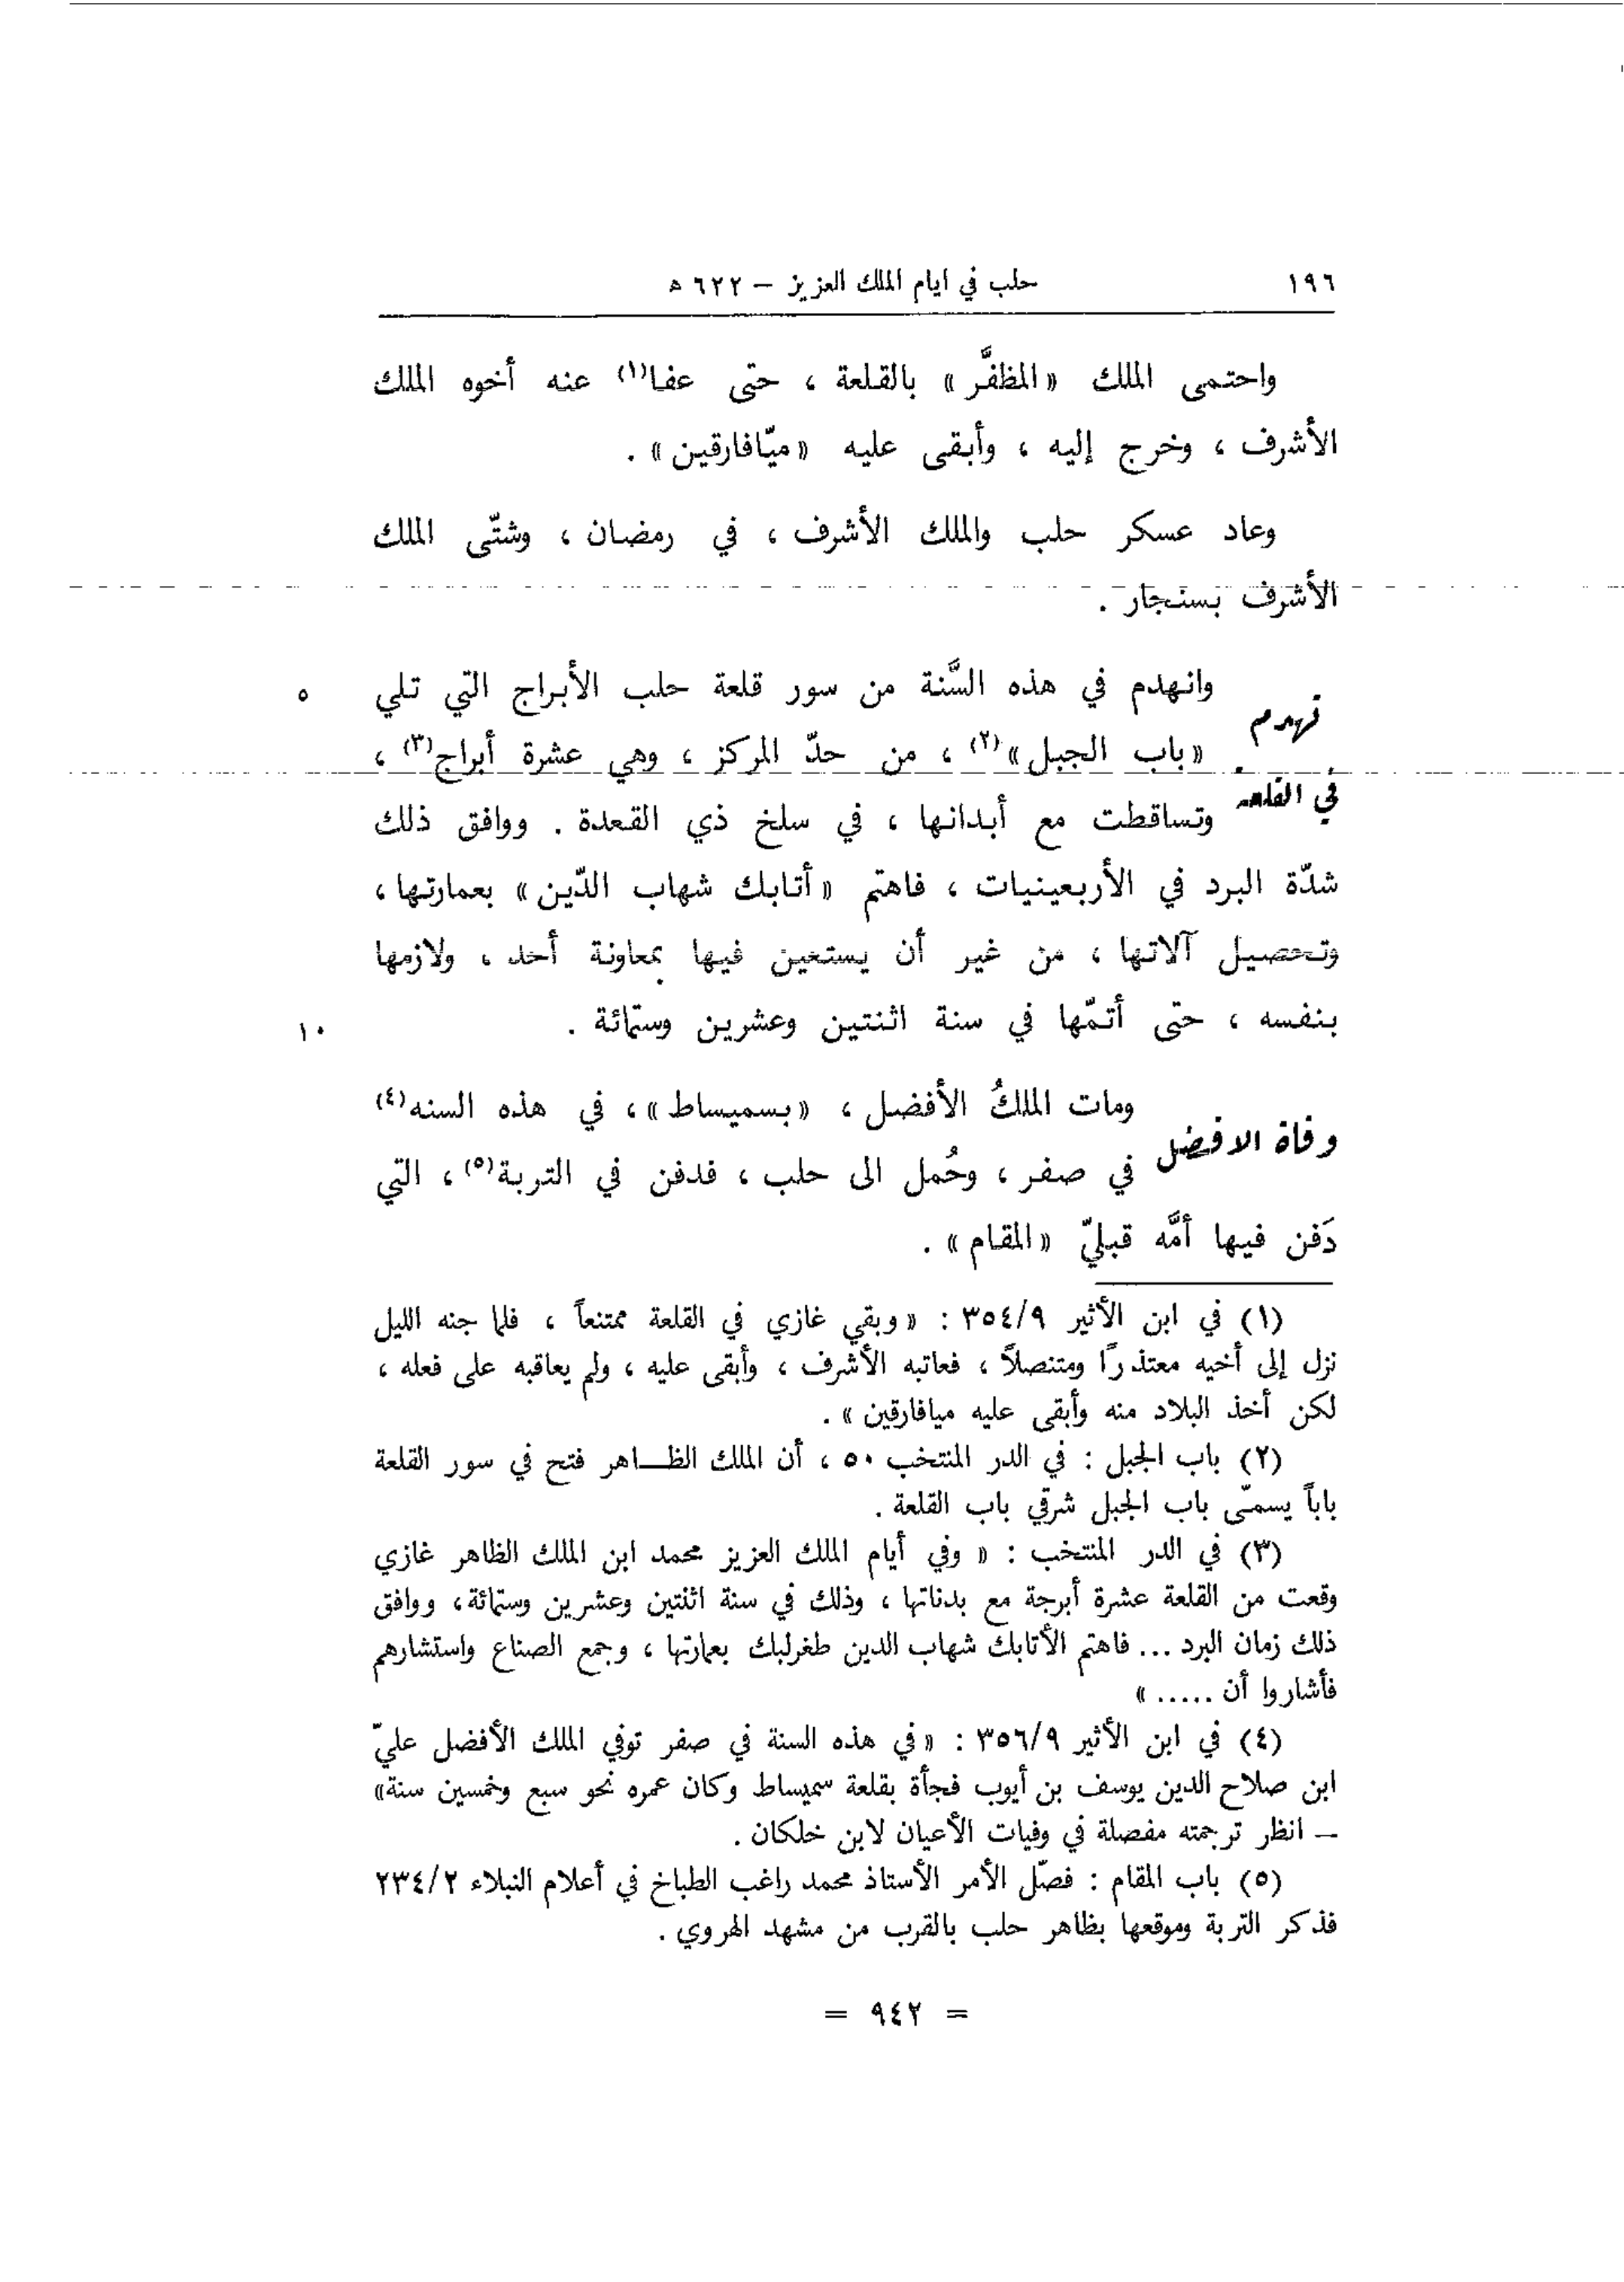 ١٩٦ حلب في ايام الملك العزيز – ٦٢٢ ه
واحتمى الملك «المظفَّر» بالقلعة ، حتى عفا(١) عنه أخوه الملك
الأشرف ، وخرج إليه ، وأبقى عليه «ميّافارقين» .
وعاد عسكر حلب والملك الأشرف ، في رمضان ، وشتّى الملك
الأشرف بسنجار .
تهدم
في القلعة
وانهدم في هذه السَّنة من سور قلعة حلب الأبراج التي تلي ٥
«باب الجبل»(٢) ، من حدّ المركز ، وهي عشرة أبراج(٣) ،
وتساقطت مع أبدانها ، في سلخ ذي القعدة . ووافق ذلك
شدّة البرد في الأربعينيات ، فاهتم «أتابك شهاب الدّين» بعمارتها ،
وتحصيل آلاتها ، من غير أن يستعين فيها بمعاونة أحد ، ولازمها
بنفسه ، حتى أتمّها في سنة اثنتين وعشرين وستمائة . ١٠
وفاة الافضل
ومات الملكُ الأفضل ، «بسميساط» ، في هذه السنه(٤)
في صفر ، وحُمل الى حلب ، فدفن في التربة(٥) ، التي
دَفن فيها أمَّه قبليّ «المقام» .
(١) في ابن الأثير ٣٥٤/٩ : «وبقي غازي في القلعة ممتنعاً ، فلما جنه الليل
نزل إلى أخيه معتذرًا ومتنصلاً ، فعاتبه الأشرف ، وأبقى عليه ، ولم يعاقبه على فعله ،
لكن أخذ البلاد منه وأبقى عليه ميافارقين» .
(٢) باب الجبل : في الدر المنتخب ٥٠ ، أن الملك الظـــاهر فتح في سور القلعة
باباً يسمّى باب الجبل شرقي باب القلعة .
(٣) في الدر المنتخب : «وفي أيام الملك العزيز محمد ابن الملك الظاهر غازي
وقعت من القلعة عشرة أبرجة مع بدناتها ، وذلك في سنة اثنتين وعشرين وستمائة ، ووافق
ذلك زمان البرد ... فاهتم الأتابك شهاب الدين طغرلبك بعمارتها ، وجمع الصناع واستشارهم
فأشاروا أن .....»
(٤) في ابن الأثير ٣٥٦/٩ : «في هذه السنة في صفر توفي الملك الأفضل عليّ
ابن صلاح الدين يوسف بن أيوب فجأة بقلعة سميساط وكان عمره نحو سبع وخمسين سنة»
– انظر ترجمته مفصلة في وفيات الأعيان لابن خلكان .
(٥) باب المقام : فصّل الأمر الأستاذ محمد راغب الطباخ في أعلام النبلاء ٢٣٤/٢
فذكر التربة وموقعها بظاهر حلب بالقرب من مشهد الهروي .
= ٩٤٢ =